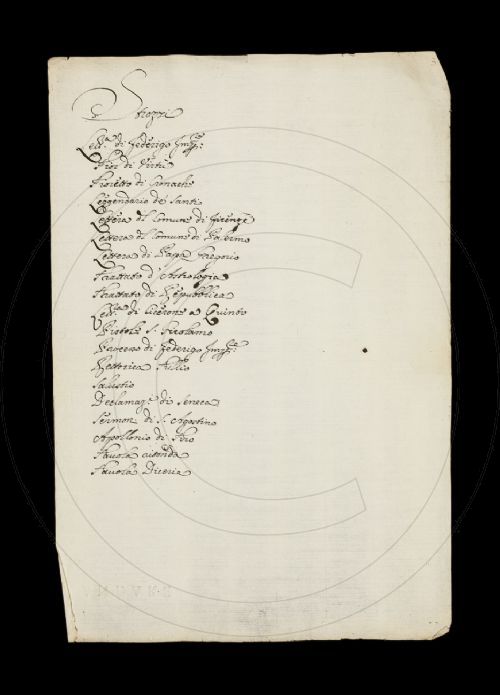 Strozzi
Lett.ra di Federigo Imp.re
Fior di Virtù
Fioretto di Cronache
Leggendario de' Santi
Lettera del Comune di Firenze
Lettera del Comune di Palermo
Lettera di Papa Gregorio
Trattato d'Astrologia
Trattato di Repubblica
Lett.ra di Cicerone a Quinto
Pistole S. Girolamo
di Federigo Imp.re
Rettorica Tullio
Salustio
Declamaz.e di Seneca
Sermon. di S. Agostino
Apollonio di Tiro
Tavola
Tavola Diceria